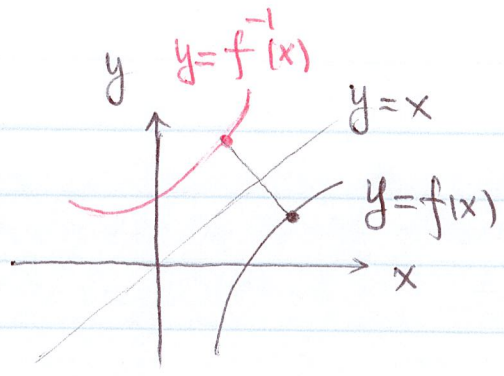 y = f⁻¹(x)
y
y = x
y = f(x)
x